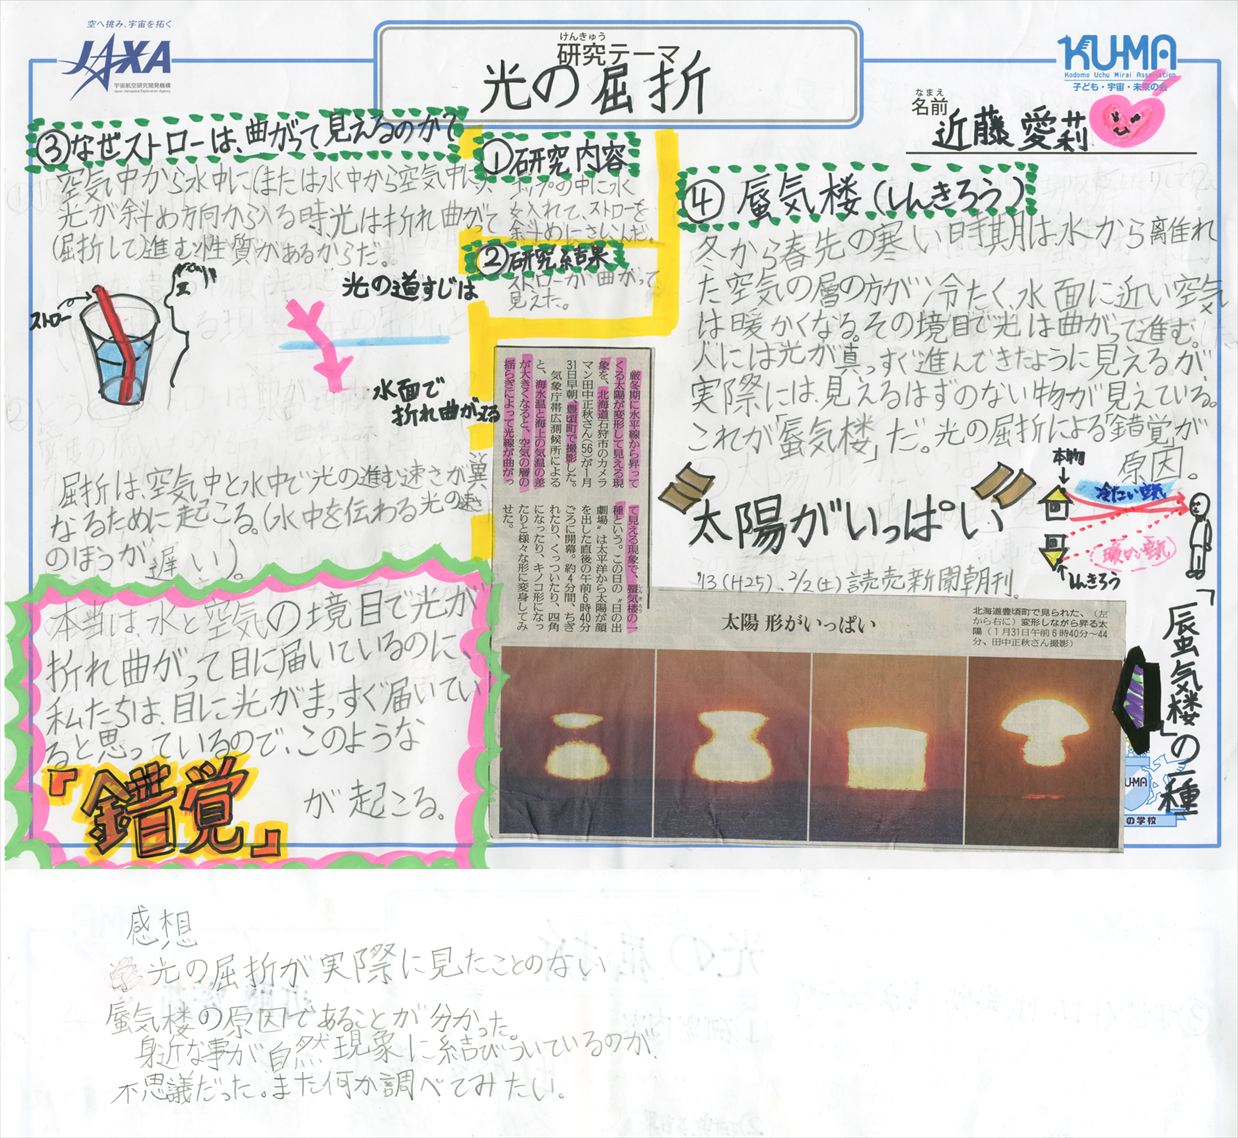 空へ挑み、宇宙を拓く
JAXA
宇宙航空研究開発機構
Japan Aerospace Exploration Agency
けんきゅう
研究テーマ
光の屈折
KU-MA
Kodomo Uchu Mirai Association
子ども・宇宙・未来の会
なまえ
名前
近藤 愛莉
①研究内容
コップの中に水
を入れて、ストローを
斜めにさしこんだ。
②研究結果
ストローが曲がって
見えた。
③なぜストローは、曲がって見えるのか?
空気中から水中に(または水中から空気中に)、
光が斜め方向から入る時光は折れ曲がって
(屈折して)進む性質があるからだ。
ストロー
光の道すじは
水面で
折れ曲がってる
屈折は、空気中と水中で光の進む速さが異
こと
なるために起こる。(水中を伝わる光の速さ
のほうが遅い)。
本当は、水と空気の境目で光が
折れ曲がって目に届いているのに、
私たちは、目に光がまっすぐ届いてい
ると思っているので、このような
『錯覚』
が起こる。
④蜃気楼(しんきろう)
冬から春先の寒い時期は水から離れ
た空気の層の方が冷たく、水面に近い空気
は暖かくなる。その境目で光は曲がって進む。
人には光が真っすぐ進んできたように見えるが
実際には、見えるはずのない物が見えている。
これが「蜃気楼」だ。光の屈折による「錯覚」が
原因。
本物
冷たい空気
暖かい空気
しんきろう
太陽がいっぱい
'13(H25)、2/2(土)読売新聞朝刊.
「蜃気楼」の一種
厳冬期に水平線から昇って
くる太陽が変形して見える現
象を、北海道石狩市のカメラ
マン田中正秋さん(56)が1月
31日早朝、豊頃町で撮影した。
気象庁帯広測候所による
と、海水温と海上の気温の差
が大きくなると、空気の層の
揺らぎによって光線が曲がっ
て見える現象で、蜃気楼の一
種という。この日の〝日の出
劇場〟は太平洋から太陽が顔
を出した直後の午前6時40分
ごろに開幕。約4分間、ちぎ
れたり、くっついたり、四角
になったり、キノコ形になっ
たりと様々な形に変身してみ
せた。
太陽 形がいっぱい
北海道豊頃町で見られた、(左
から右に)変形しながら昇る太
陽(1月31日午前6時40分~44
分、田中正秋さん撮影)
U-MA
の学校
感想
光の屈折が実際に見たことのない
蜃気楼の原因であることが分かった。
身近な事が自然現象に結びついているのが
不思議だった。また何か調べてみたい。